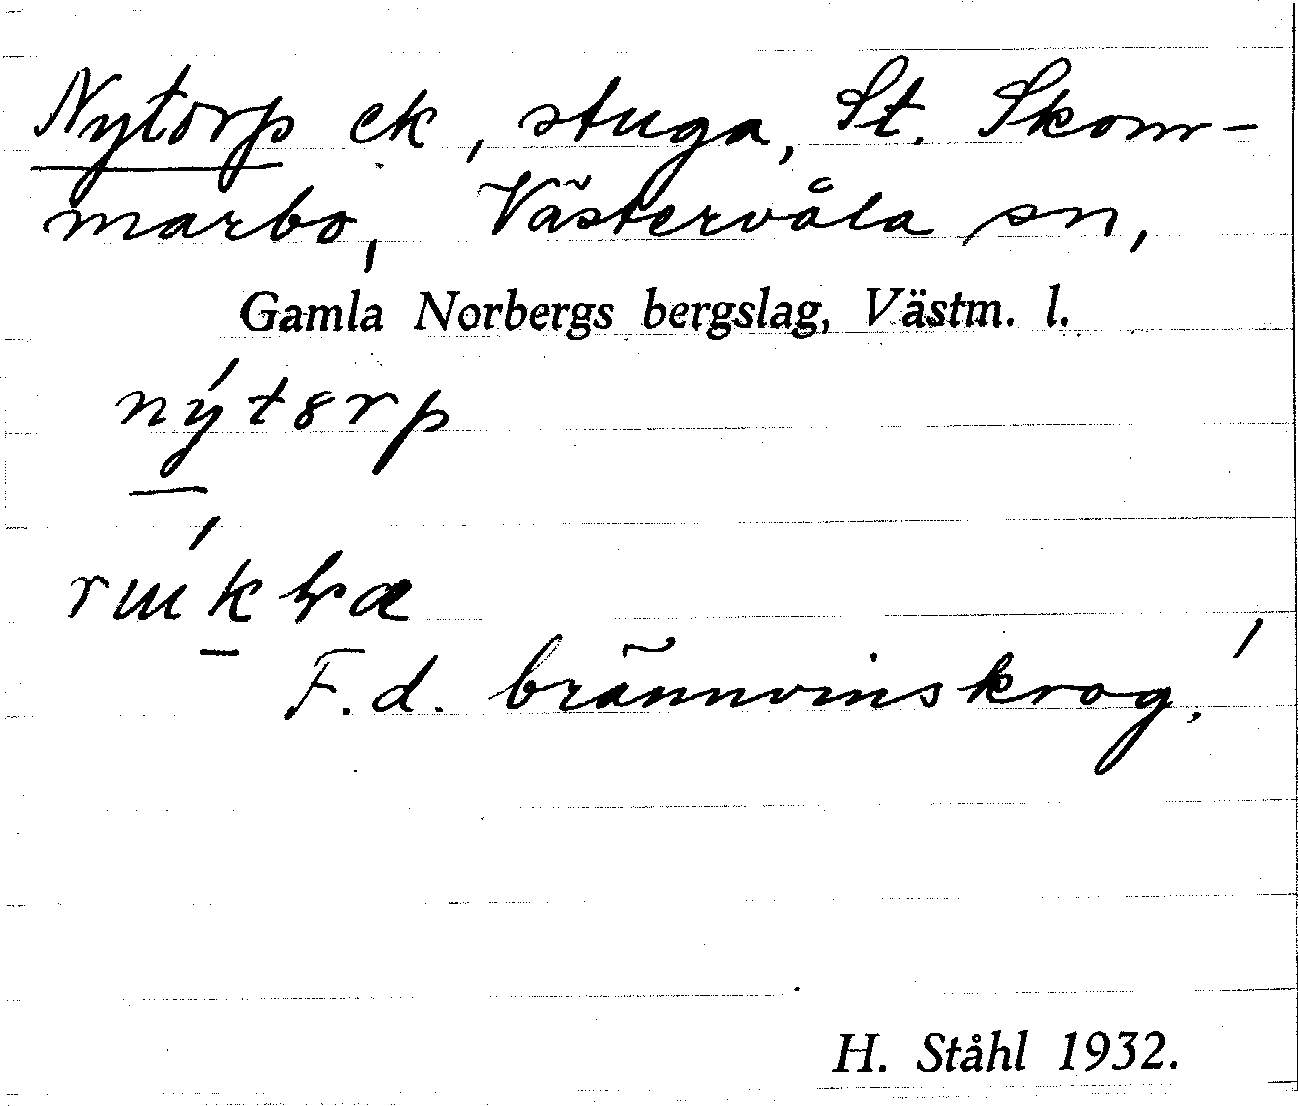 Nytorp ek, stuga, St. Skom-
marbo, Västervåla sn,
Gamla Norbergs bergslag, Västm. l.
nýtorp
F.d. brännvinskrog.
H. Ståhl 1932.